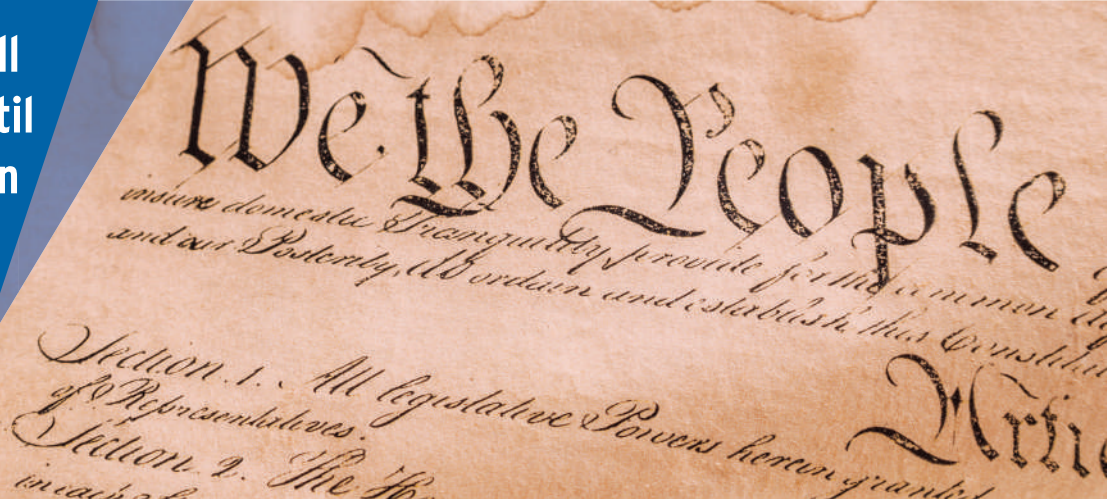 ll
til
n
We the People
insure domestic Tranquility, provide for the common
and our Posterity, do ordain and establish this Constitu
Artic
Section. 1. All legislative Powers herein granted
of Representatives.
Section. 2. The Ho